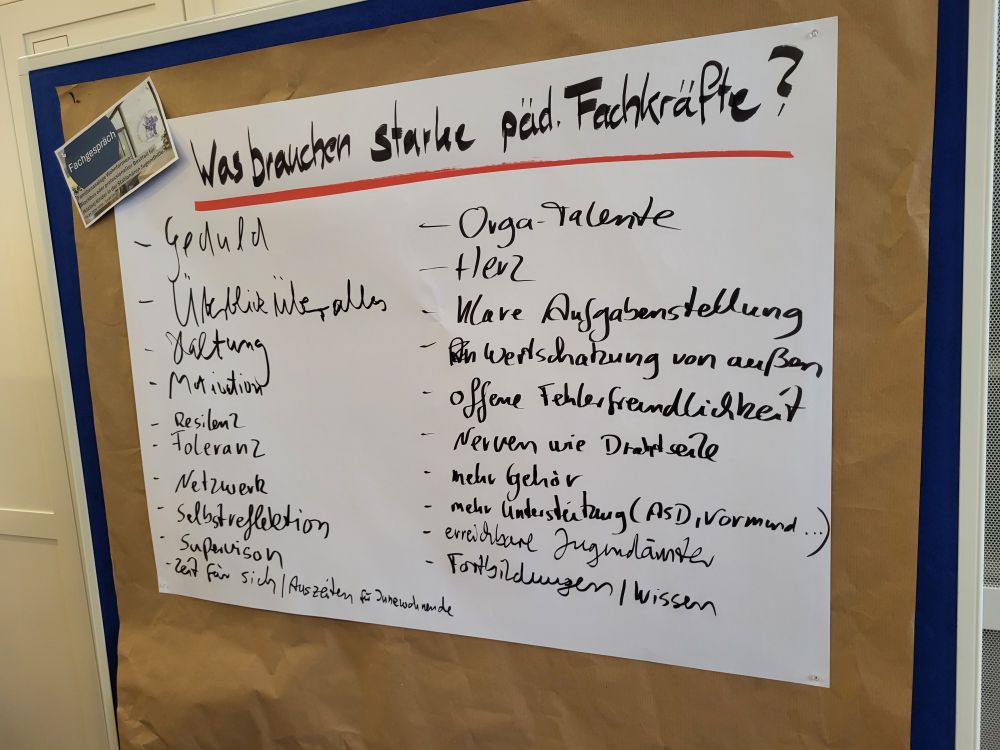 Fachgespräch
Was brauchen starke päd. Fachkräfte?
- Geduld
- Überblick über alles
- Haltung
- Motivation
- Resilenz
- Toleranz
- Netzwerk
- Selbstreflektion
- Supervison
- Zeit für sich / Auszeiten für Innewohnende
- Orga-Talente
- Herz
- klare Aufgabenstellung
- Wertschatzung von außen
- offene Fehlerfreundlichkeit
- Nerven wie Drahtseile
- mehr Gehör
- mehr Unterstützung (ASD, Vormund...)
- erreichbare Jugendämter
- Fortbildungen / Wissen